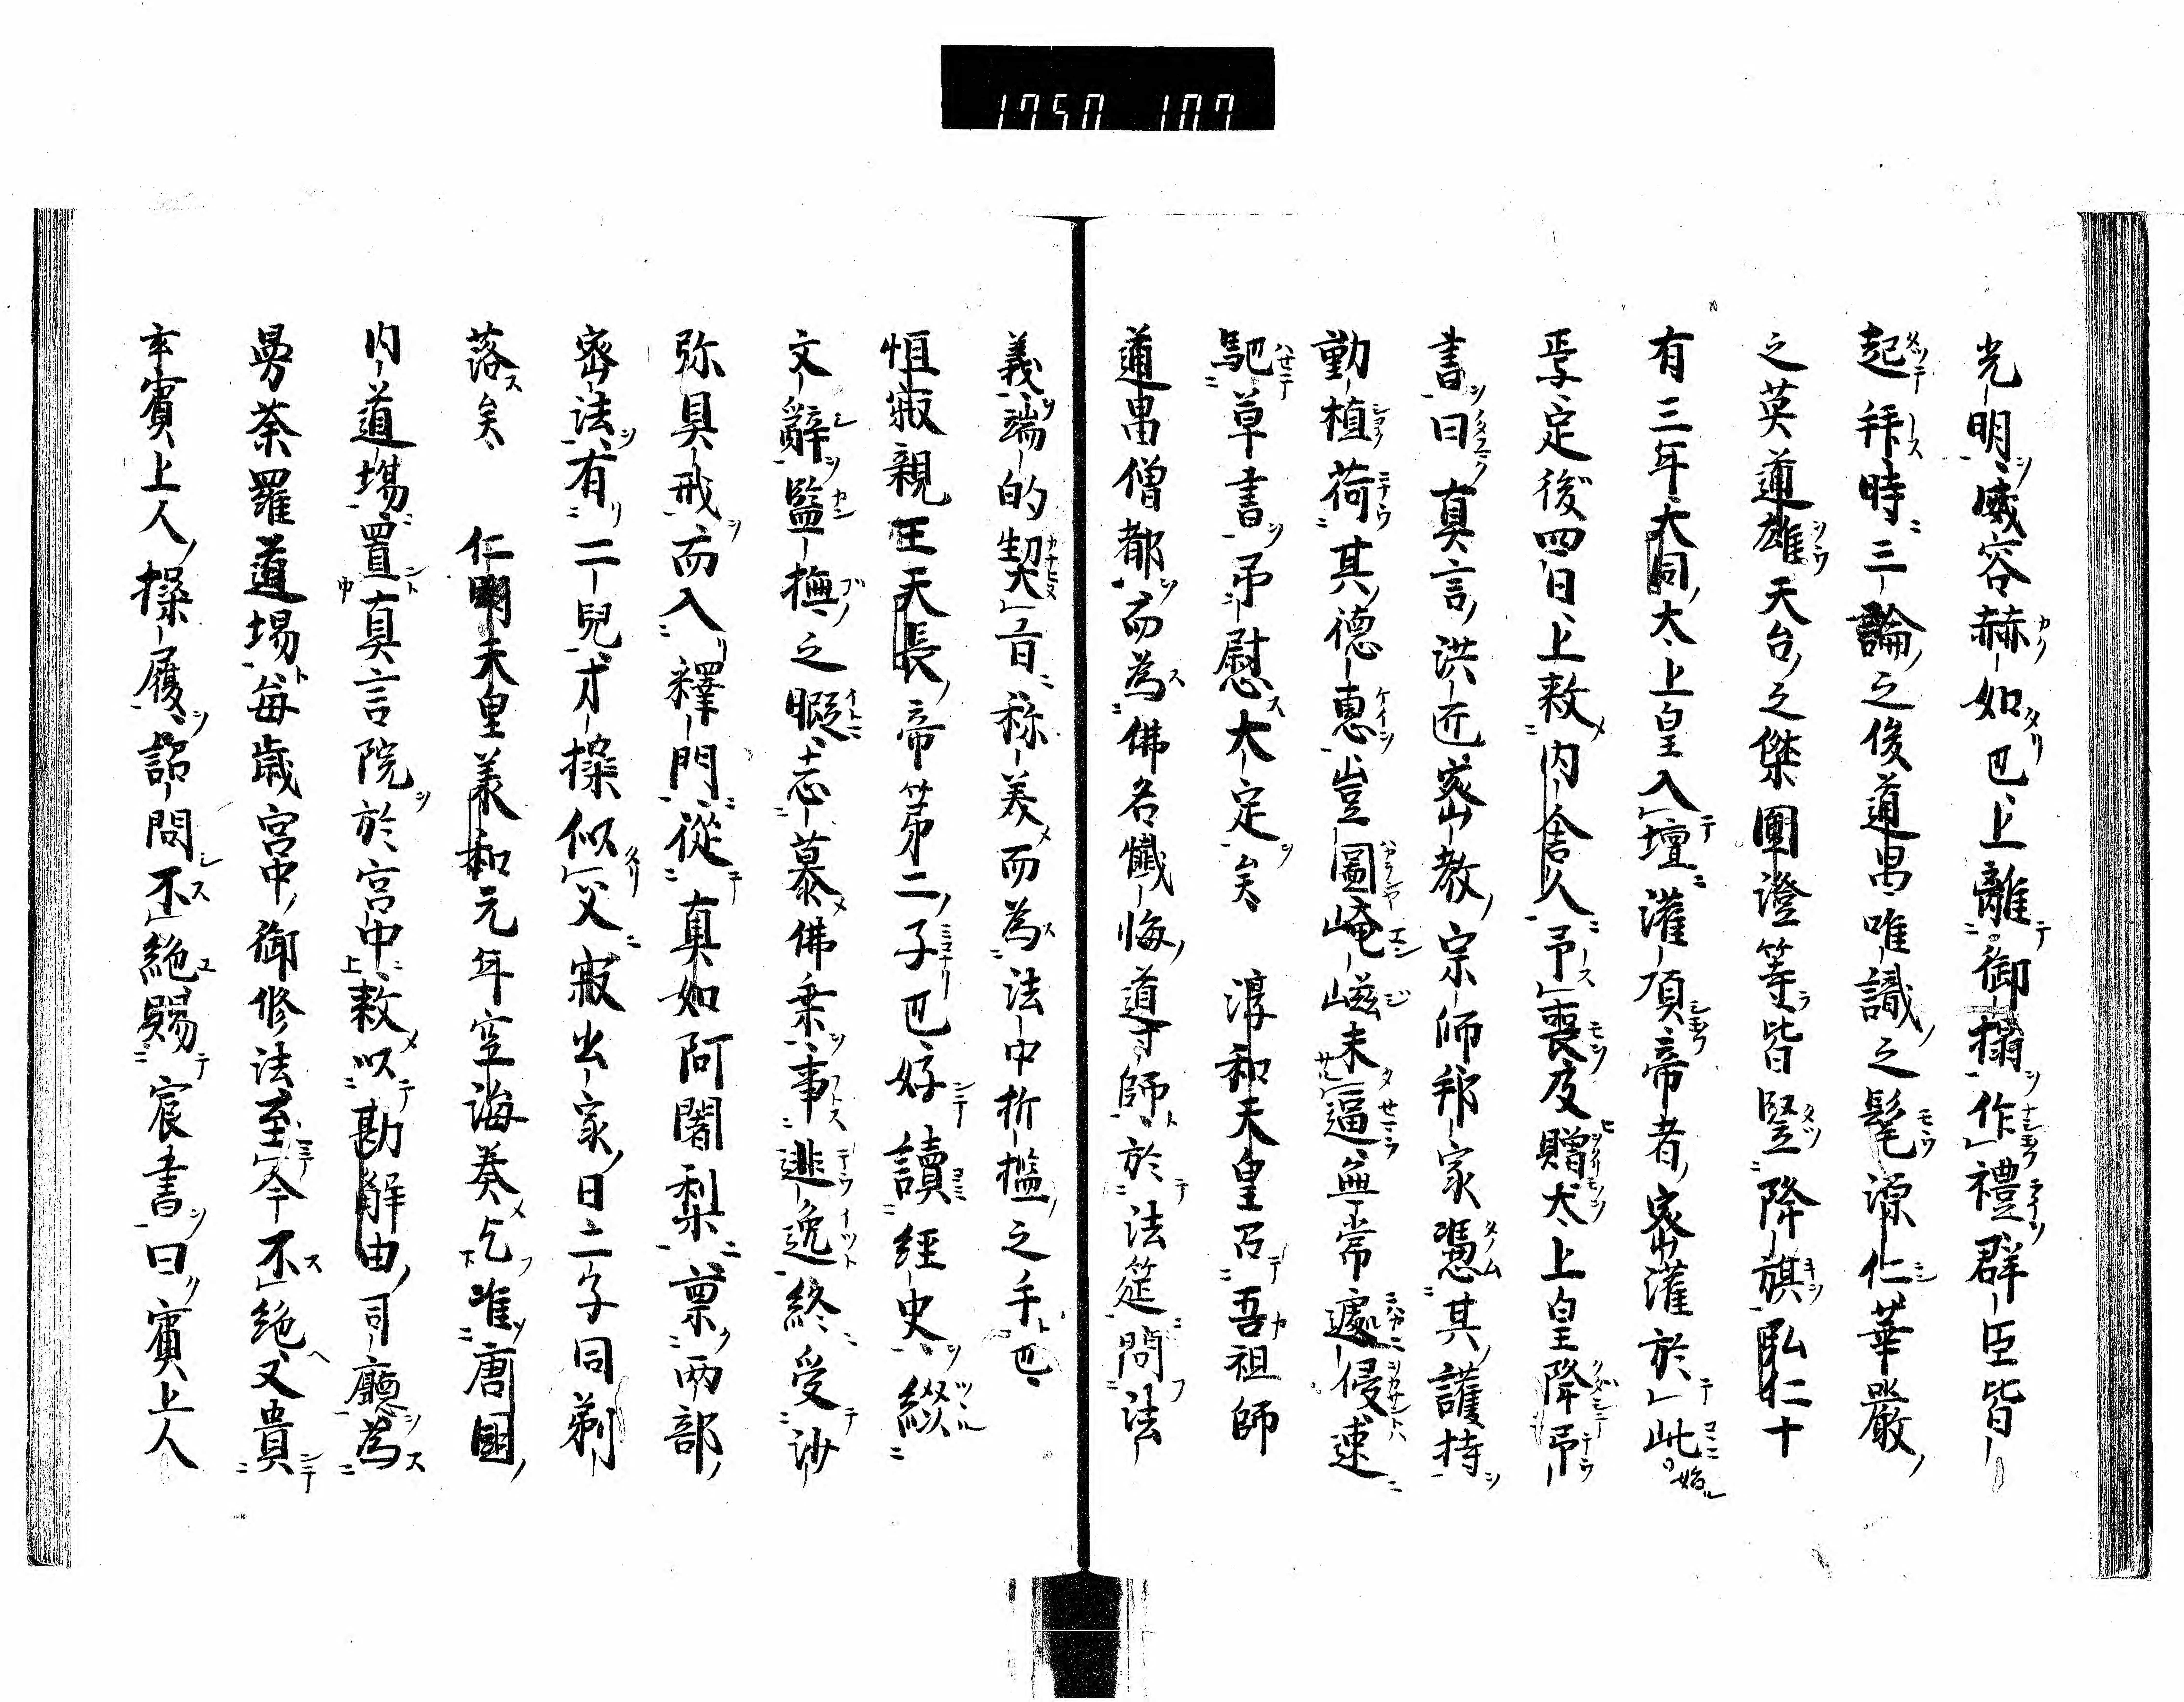 1750 107
光明威容赫如也上離御榻作禮群臣皆
起拜時三論之俊道昌唯識之髦源仁華嚴
之英道雄天台之傑圓澄等皆竪降旗弘仁十
有三年大同太上皇入壇灌頂帝者密灌於此始
定後四日上敕內舍人弔喪及贈太上皇降弔
書曰真言洪匠密教宗師邦家憑其護持
動植荷其德惠豈圖崦嵫未逼無常遽侵速
馳草書弔慰大定矣　淳和天皇召吾祖師
道昌僧都而為佛名懺悔導師於法筵問法
義端的契旨称美而為法中折檻之手也
恒寂親王天長帝第二子也好讀經史綴
文辭監撫之暇志慕佛乗事遜逸終受沙
弥具戒而入釋門從真如阿闍梨禀兩部
密法有二兒才操似父寂出家日二子同剃
落矣　仁明天皇義和元年空海奏乞准唐國
内道場置真言院於宮中敕以勘解由司廳為
曼荼羅道場每歳宮中御修法至今不絶又貴
玄賓上人操履詔問不絶賜宸書曰賓上人